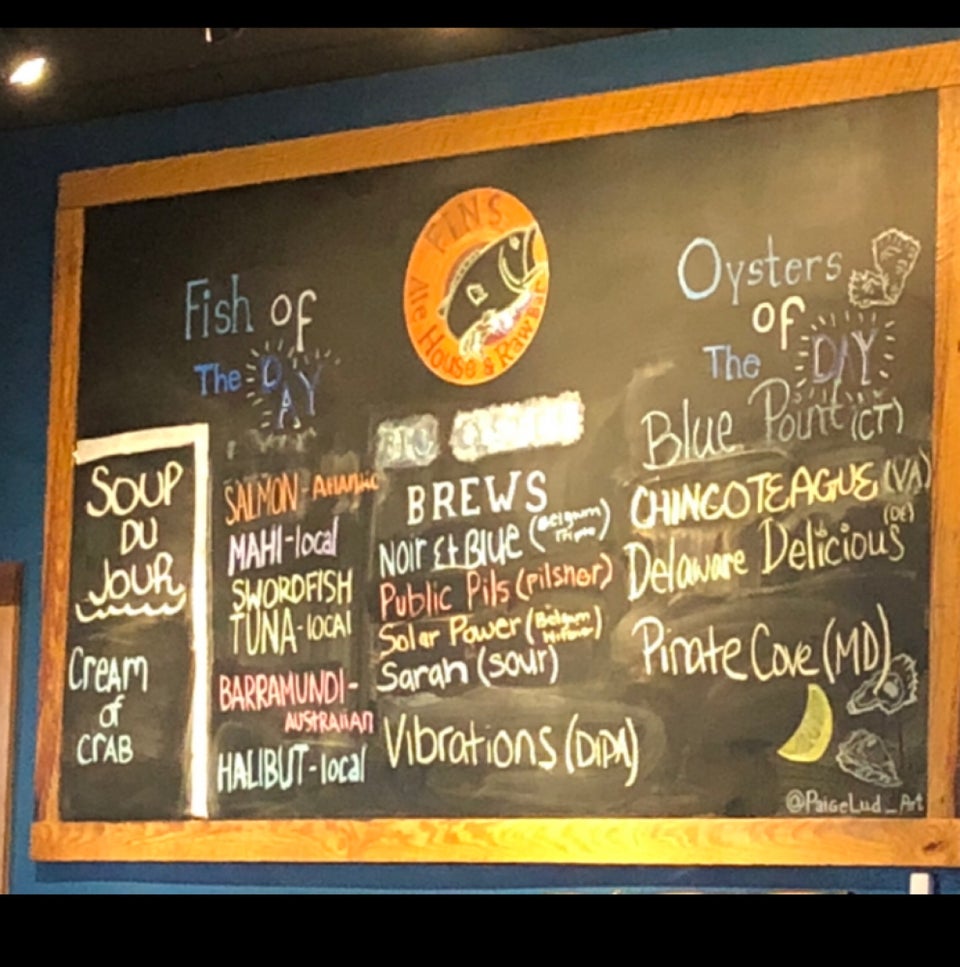 FINS
Ale House & Raw Bar
Fish of
The DAY
SALMON - Atlantic
MAHI - local
SWORDFISH
TUNA - local
BARRAMUNDI -
AUSTRALIAN
HALIBUT - local
SOUP
DU
JOUR
Cream
of
CRAB
BREWS
Noir Et Blue (Belgum
Public Pils (pilsner)
Solar Power (Belgum
Sarah (sour)
Vibrations (DIPA)
Oysters
of
The DAY
Blue Point (CT)
CHINCOTEAGUE (VA)
Delaware Delicious (DE)
Pirate Cove (MD)
@PaigeLud_Art